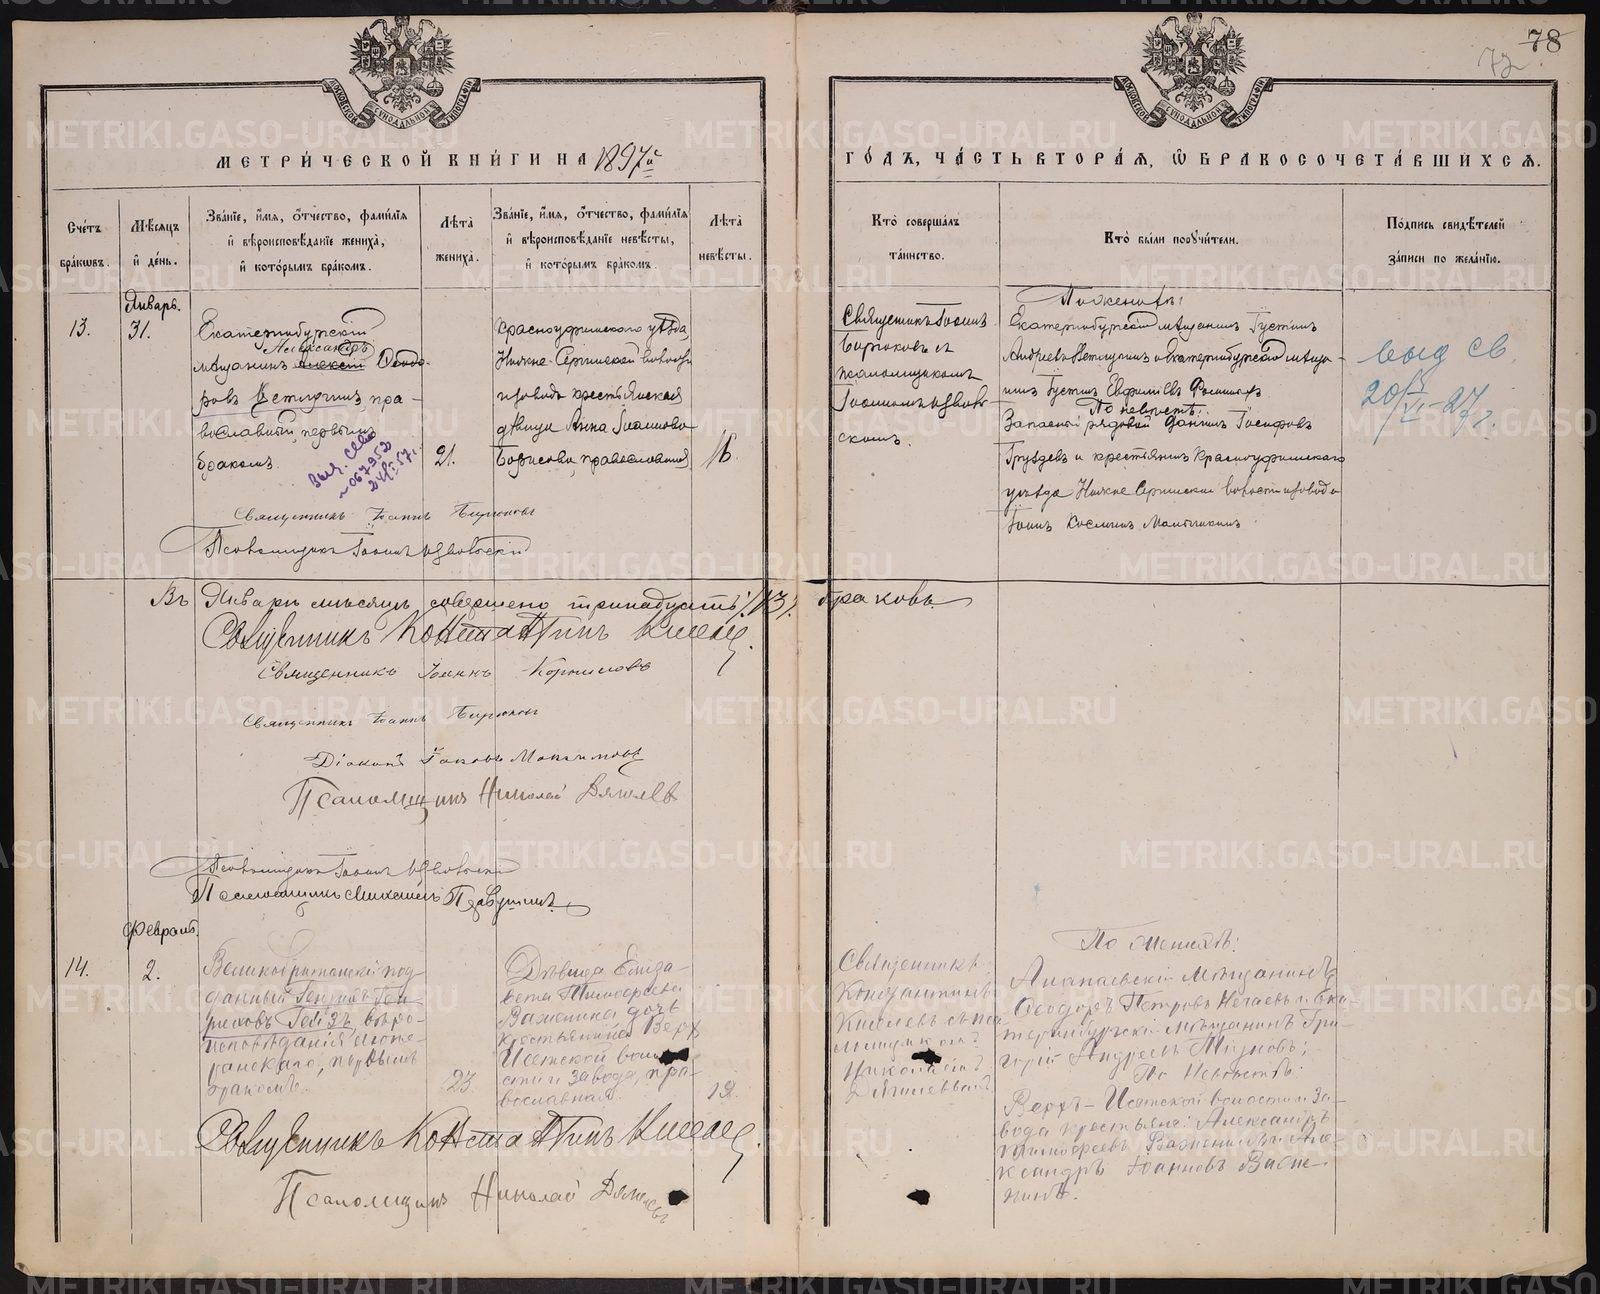 78
72
МОСКОВСКОЙ СѴНОДАЛЬНОЙ ТИПОГРАФІИ
МОСКОВСКОЙ СѴНОДАЛЬНОЙ ТИПОГРАФІИ
МЕТРИ́ЧЕСКОЙ КНИ́ГИ НА 1897й
ГО́ДЪ, ЧА́СТЬ ВТОРА́Я, Ѡ БРАКОСОЧЕТА́ВШИХСЯ.
Сче́тъ бра́кѡвъ.
Мѣ́сяцъ и҆ де́нь.
Зва́нїе, и҆́мя, ѻ҆́тчество, фами́лїя и҆ вѣроисповѣ́данїе жениха̀, и҆ кото́рымъ бра́комъ.
Лѣ́та жениха̀.
Зва́нїе, и҆́мя, ѻ҆́тчество, фами́лїя и҆ вѣроисповѣ́данїе невѣ́сты, и҆ кото́рымъ бра́комъ.
Лѣ́та невѣ́сты.
Кто̀ соверша́лъ та́инство.
Кто̀ бы́ли поручи́тели.
По́дпись свидѣ́телей за́писи по жела́нїю.
Январь.
13.
31.
Екатеринбургскій
Александръ
мѣщанинъ Алексій Ѳеодо-
ровъ Ветлугинъ, пра-
вославный, первымъ
бракомъ.
21.
Красноуфимскаго уѣзда,
Нижне-Сергинской волости
и завода крестьянская
дѣвица Анна Іоаннова
Борисова, православная
16.
Священникъ Іоаннъ
Бирюковъ съ
псаломщикомъ
Іоанномъ
По женихѣ:
Екатеринбургскій мѣщанинъ Іустинъ
Андреевъ Ветлугинъ и Екатеринбургскій мѣща-
нинъ Іустинъ Евфиміевъ
По невѣстѣ:
Запасный рядовой Даніилъ Іосифовъ
Груздевъ и крестьянинъ Красноуфимскаго
уѣзда Нижне Сергинской волости и завода
Іоаннъ Косминъ
выд св.
Выд. св-во
Священникъ Іоаннъ Бирюковъ
Псаломщикъ Іоаннъ
Въ Январѣ мѣсяцѣ совершено тринадцать /13/ браковъ
Священникъ Константинъ Киселевъ.
Священникъ Іоаннъ Корнилов
Священникъ Іоаннъ Бирюковъ
Діаконъ Іаковъ Максимовъ
Псаломщикъ Николай Дягилевъ
Псаломщикъ Іоаннъ
Псаломщикъ Михаилъ
Февраль.
14.
2.
Великобританскій под-
данный Генрихъ Ген-
риховъ Гейзъ, вѣро-
исповѣданія люте-
ранскаго, первымъ
бракомъ.
23.
Дѣвица Елиза-
вета Тимофеева
Важенина дочь
крестьянина Верхъ
Исетской воло-
сти и завода, пра-
вославная.
19.
Священникъ
Константинъ
Киселевъ съ пса-
ломщикомъ
Николаемъ
Дягилевымъ.
По женихѣ:
Алапаевскій Мѣщанинъ
Ѳеодоръ Петровъ Нечаевъ и Ека-
теринбургскій Мѣщанинъ Гри-
горій Андреевъ
По Невѣстѣ:
Верхъ-Исетской волости и за-
вода крестьяне: Александръ
Тимофеевъ Важенинъ и Але-
ксандръ Іоанновъ Важе-
нинъ.
Священникъ Константинъ Киселевъ.
Псаломщикъ Николай Дягилевъ